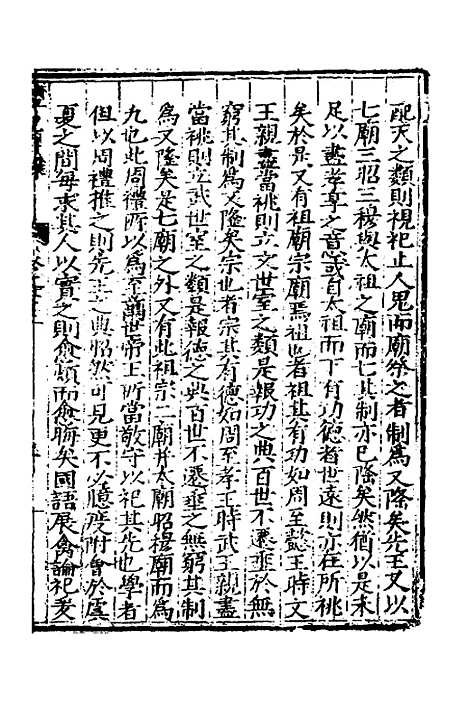 配天之類則視祀止人鬼而廟祭之者制為又隆矣先王又以
七廟三昭三穆與太祖之廟而七其制亦已隆矣然猶以是未
足以盡孝享之意或自太祖而下有功德者世遠則亦在所祧
矣於是又有祖廟宗廟焉祖也者祖其有功如周至懿王時文
王親盡當祧則立文世室之類是報功之典百世不遷垂於無
窮其制為又隆矣宗也者宗其有德如周至孝王時武王親盡
當祧則立武世室之類是報德之典百世不遷垂之無窮其制
為又隆矣是七廟之外又有此祖宗二廟并太廟昭穆廟而為
九也此周禮所以為至備世帝王所當敬守以祀其先也學者
但以周禮推之則先王之典昭然可見更不必臆度附會於虞
夏之間每求其人以實之則愈煩而愈晦矣國語展禽論祀爰